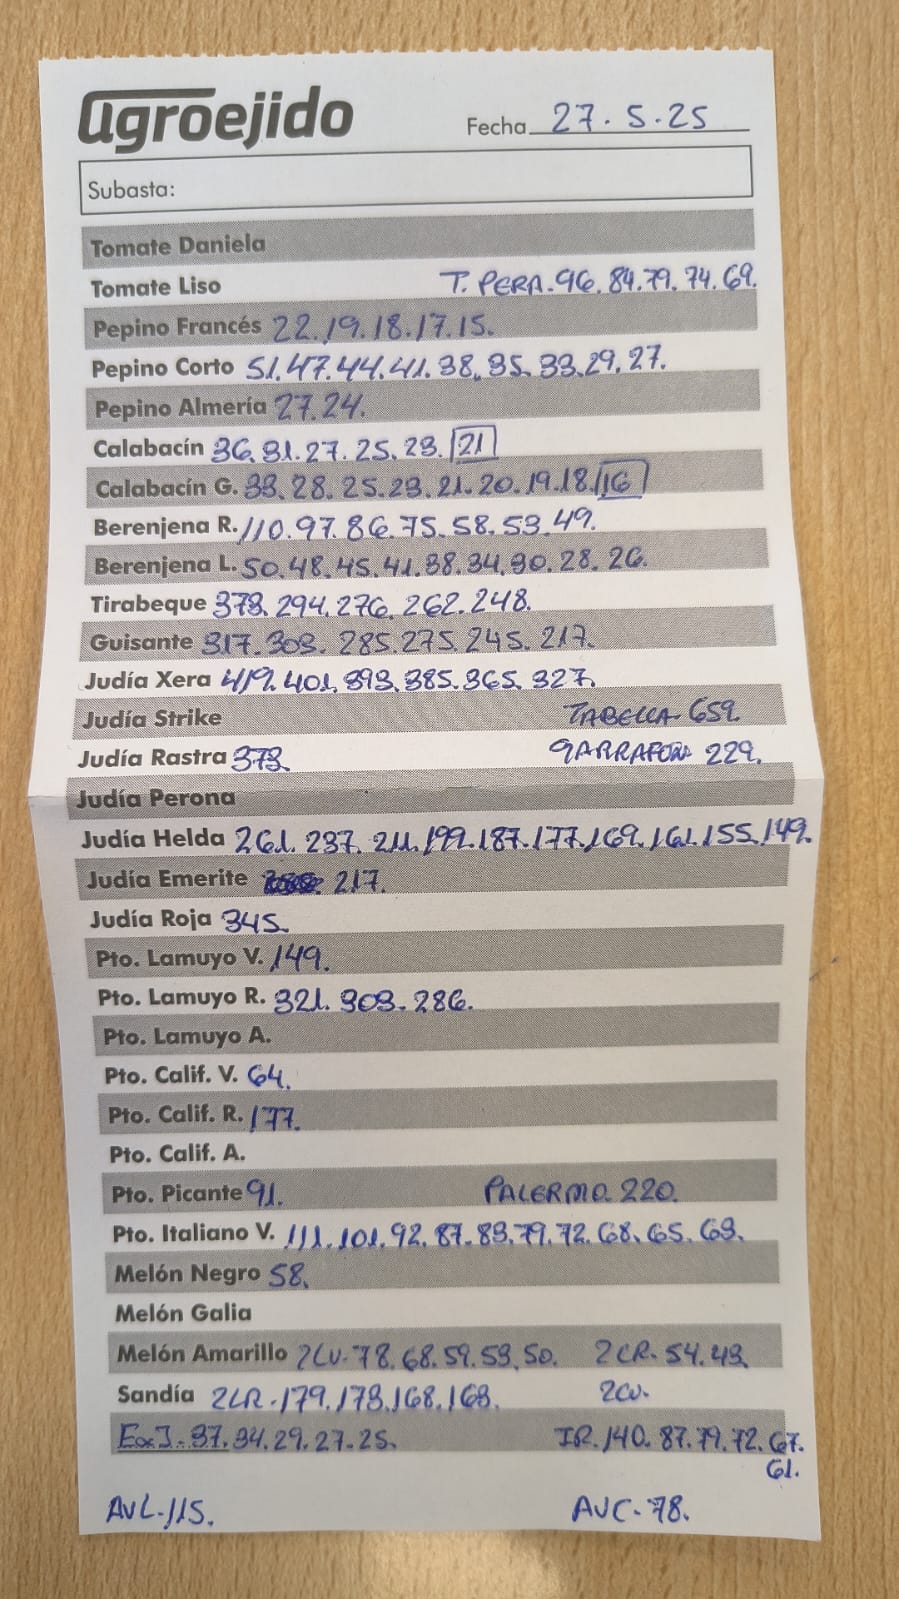 agroejido Fecha 27.5.25
Subasta:
Tomate Daniela
Tomate Liso T. PERA.96.84.79.74.69.
Pepino Francés 22.19.18.17.15.
Pepino Corto 51.47.44.41.38.35.33.29.27.
Pepino Almería 27.24.
Calabacín 36.31.27.25.23.21
Calabacín G. 33.28.25.23.21.20.19.18.16
Berenjena R. 110.97.86.75.58.53.49.
Berenjena L. 50.48.45.41.38.34.30.28.26.
Tirabeque 373.294.276.262.248.
Guisante 317.303.285.275.245.217.
Judía Xera 419.401.393.385.365.327.
Judía Strike TABELLA.659.
Judía Rastra 373. GARRAFON 229.
Judía Perona
Judía Helda 261.237.211.199.187.177.169.161.155.149.
Judía Emerite 217.
Judía Roja 345.
Pto. Lamuyo V. 149.
Pto. Lamuyo R. 321.303.286.
Pto. Lamuyo A.
Pto. Calif. V. 64.
Pto. Calif. R. 177.
Pto. Calif. A.
Pto. Picante 91. PALERMO.220.
Pto. Italiano V. 111.101.92.87.83.79.72.68.65.63.
Melón Negro 58.
Melón Galia
Melón Amarillo 2CV.78.68.59.53.50. 2CR.54.43.
Sandía 2LR.179.173.168.163. 2CV.
37.34.29.27.25. IR.140.87.79.72.67.
61.
AVL.115. AVC.78.